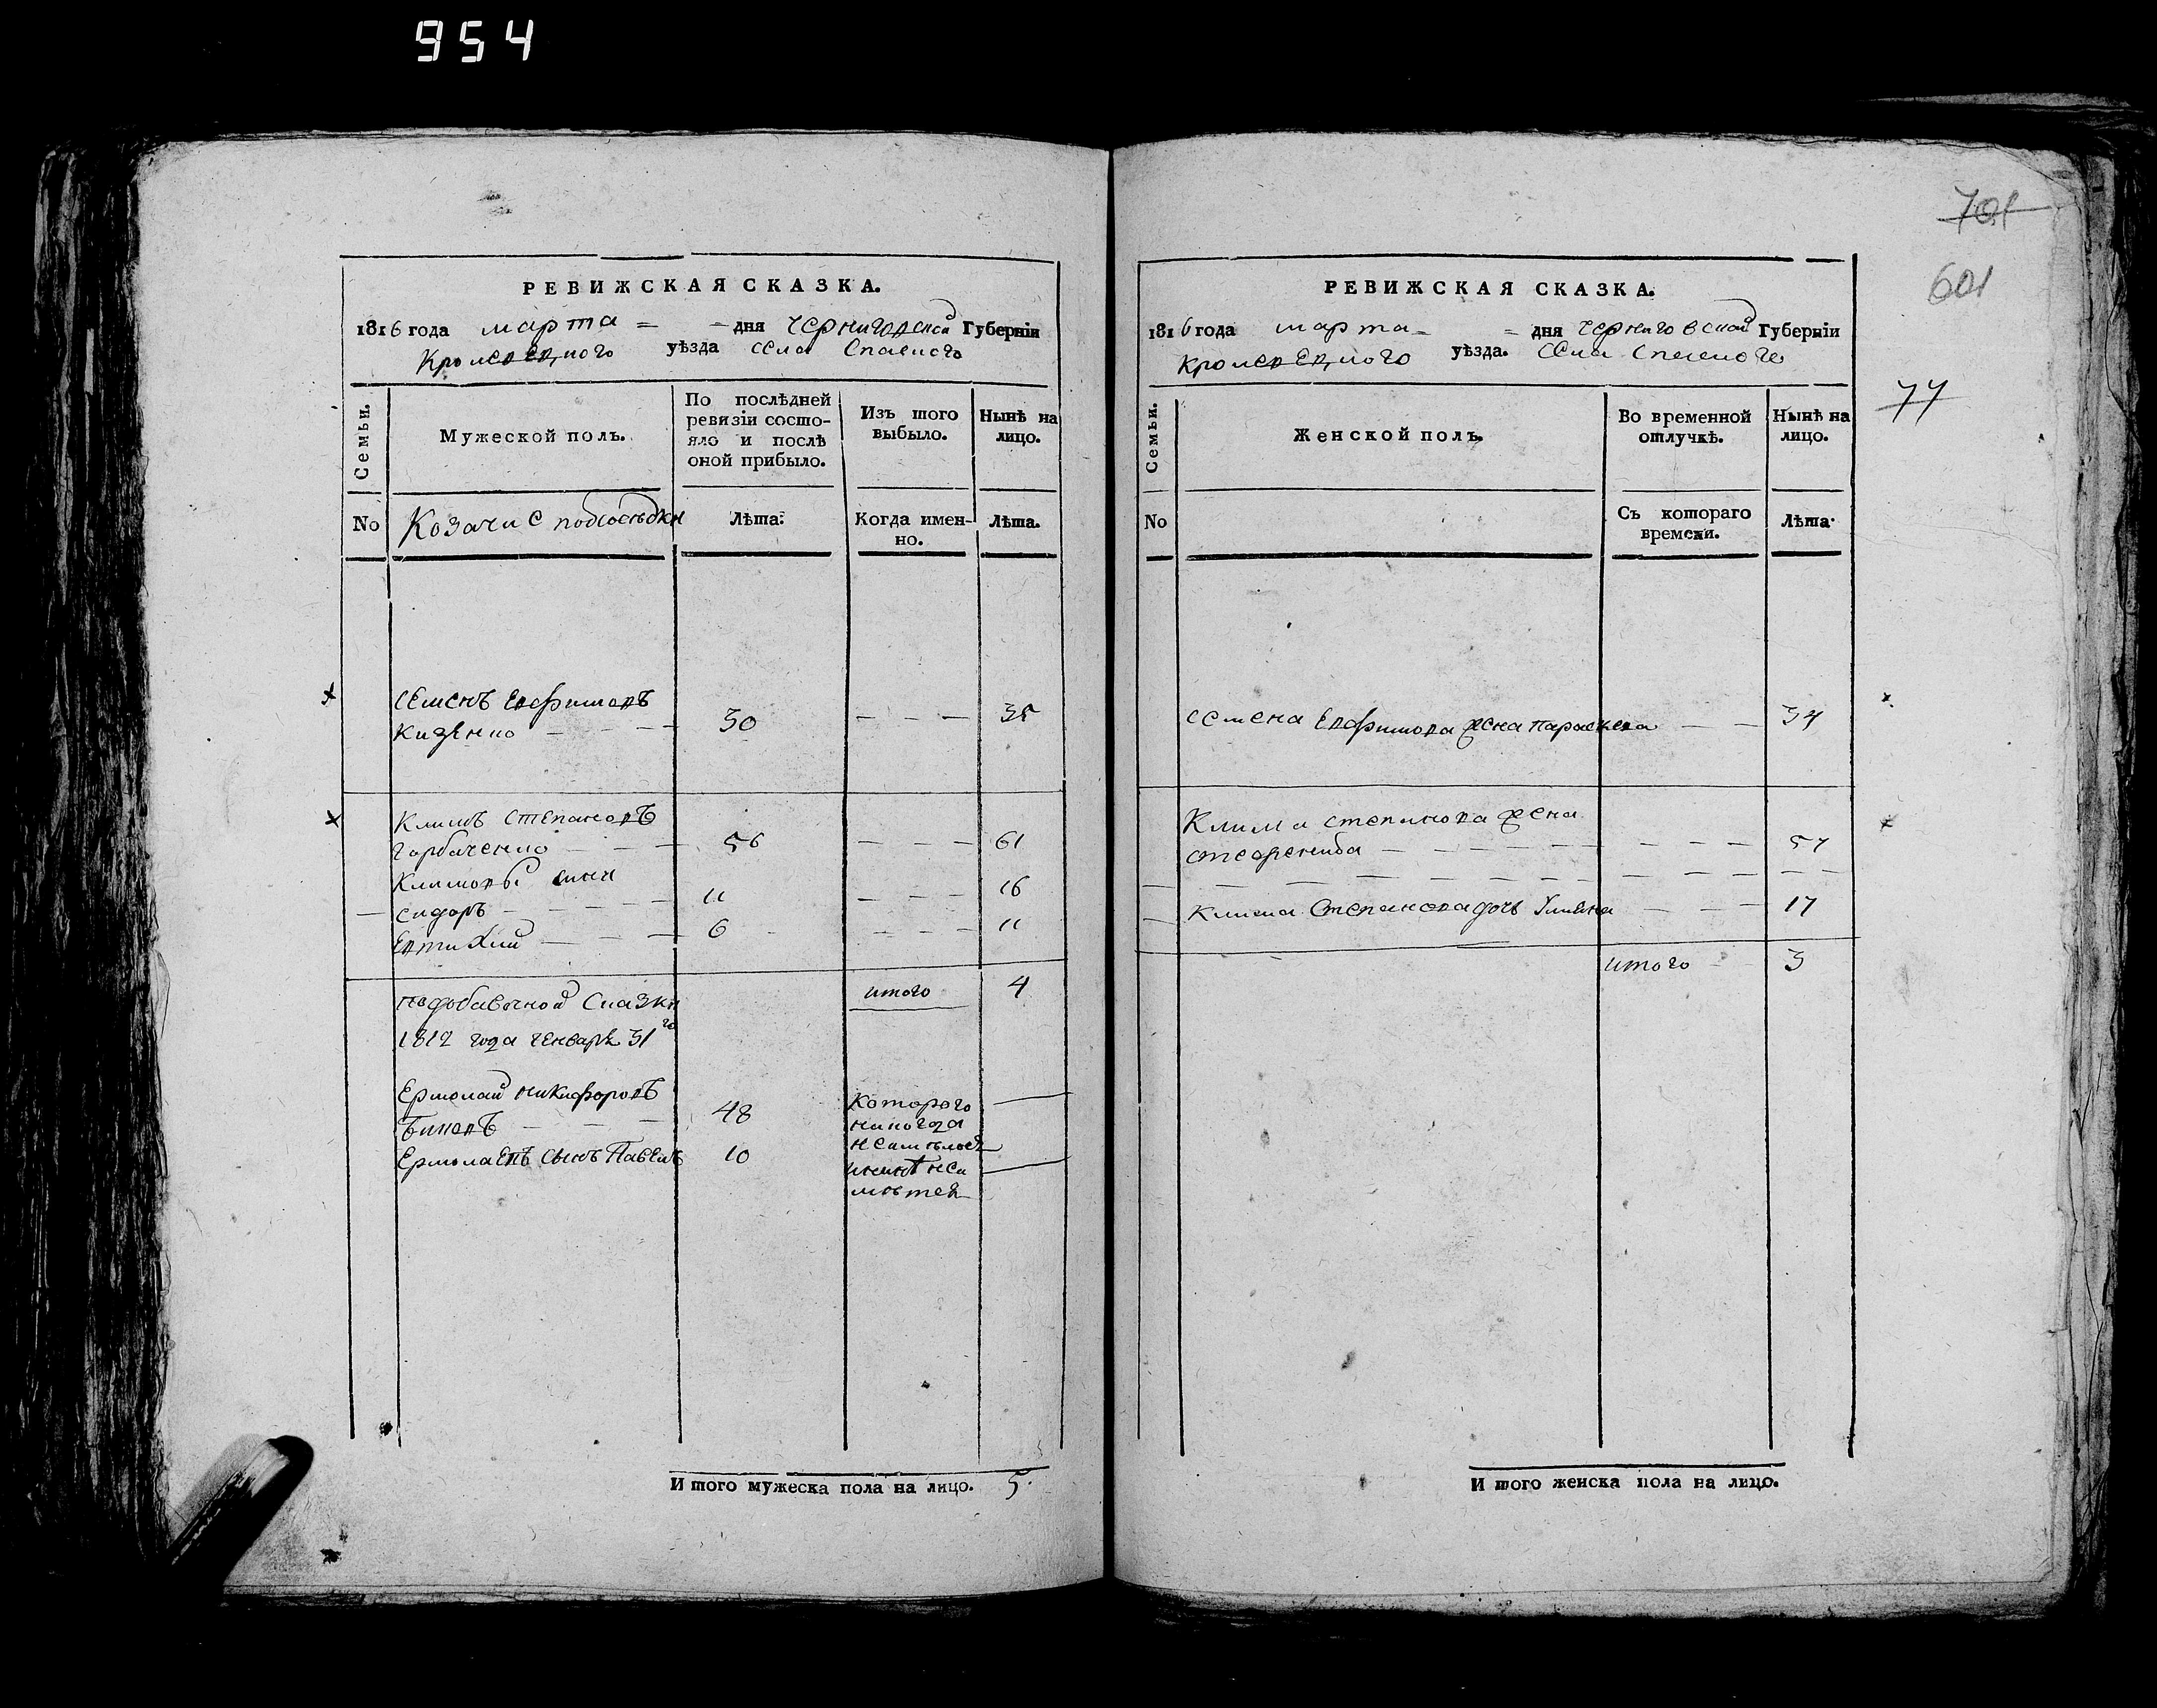 954
РЕВИЖСКАЯ СКАЗКА.
1816 года марта = - дня Черниговской Губерніи
Кролевецкого уѣзда села Спаского
Семьи.
Мужеской полъ.
По послѣдней ревизіи состояло и послѣ оной прибыло.
Изъ того выбыло.
Нынѣ на лицо.
No
Козачи С подсоседки
Лѣта.
Когда именно.
Лѣта.
Семенъ Евфимовъ
Кизенко 30 35
Климъ Степановъ
Горбаченко 56 61
Климовы сыны
Сидоръ 11 16
Евтихий 6 11
итого 4
по добавочной Сказки
1812 года генваря 31го
Ермолай Никифоровъ
48
Ермолаевъ сынъ Павелъ 10
Которого
никогда
неимелось
и нынѣ неи
мѣтся
И того мужеска пола на лицо. 5
701
601
77
РЕВИЖСКАЯ СКАЗКА.
1816 года марта = дня Черниговской Губерніи
Кролевецкого уѣзда. Села Спаского
Семьи.
Женской полъ.
Во временной отлучкѣ.
Нынѣ на лицо.
No
Съ котораго времени.
Лѣта.
Семена Евфимова жена Параскева 34
Клима Степанова жена
57
Клима Степанова дочь Ульяна 17
итого 3
И того женска пола на лицо.